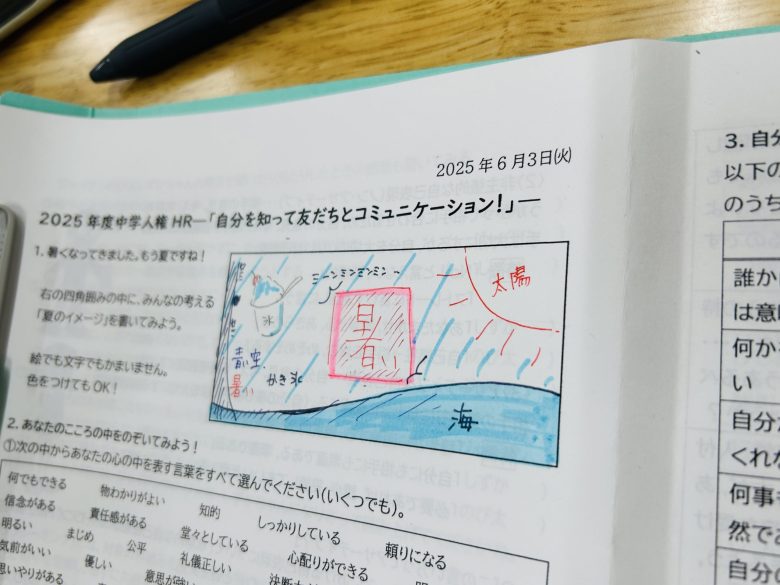 2025年6月3日(火)
2025年度中学人権HR―「自分を知って友だちとコミュニケーション！」―
1. 暑くなってきました。もう夏ですね！
右の四角囲みの中に、みんなの考える
「夏のイメージ」を書いてみよう。
絵でも文字でもかまいません。
色をつけてもOK！
ミーンミンミンミンー
太陽
氷
暑い
青い空
暑い
かき氷
海
2. あなたのこころの中をのぞいてみよう！
①次の中からあなたの心の中を表す言葉をすべて選んでください(いくつでも)。
何でもできる 物わかりがよい 知的 しっかりしている 頼りになる
信念がある 責任感がある 堂々としている 心配りができる
明るい まじめ 公平 礼儀正しい
気前がいい 優しい 意思が強い
思いやりがある
3. 自分
以下の
のうち
誰か
は意
何か
い
自分
くれな
何事
然であ
自分の